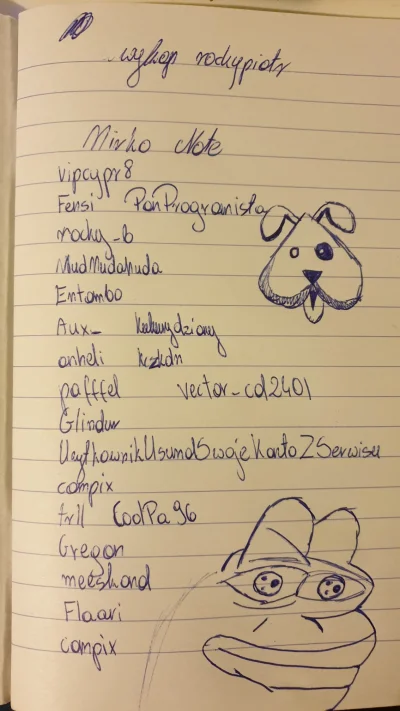 wykop rockypiotr
Mirko Note
vipcypr8
Fensi PanProgramista
rocky_b
MudMudaHuda
Entombo
Aux_
anheli kzkdn
pafffel vector-cd2401
Glindur
UzytkownikUsunalSwojeKontoZSerwisu
compix
trll CoolPa96
Gregon
meeskond
Flaari
compix